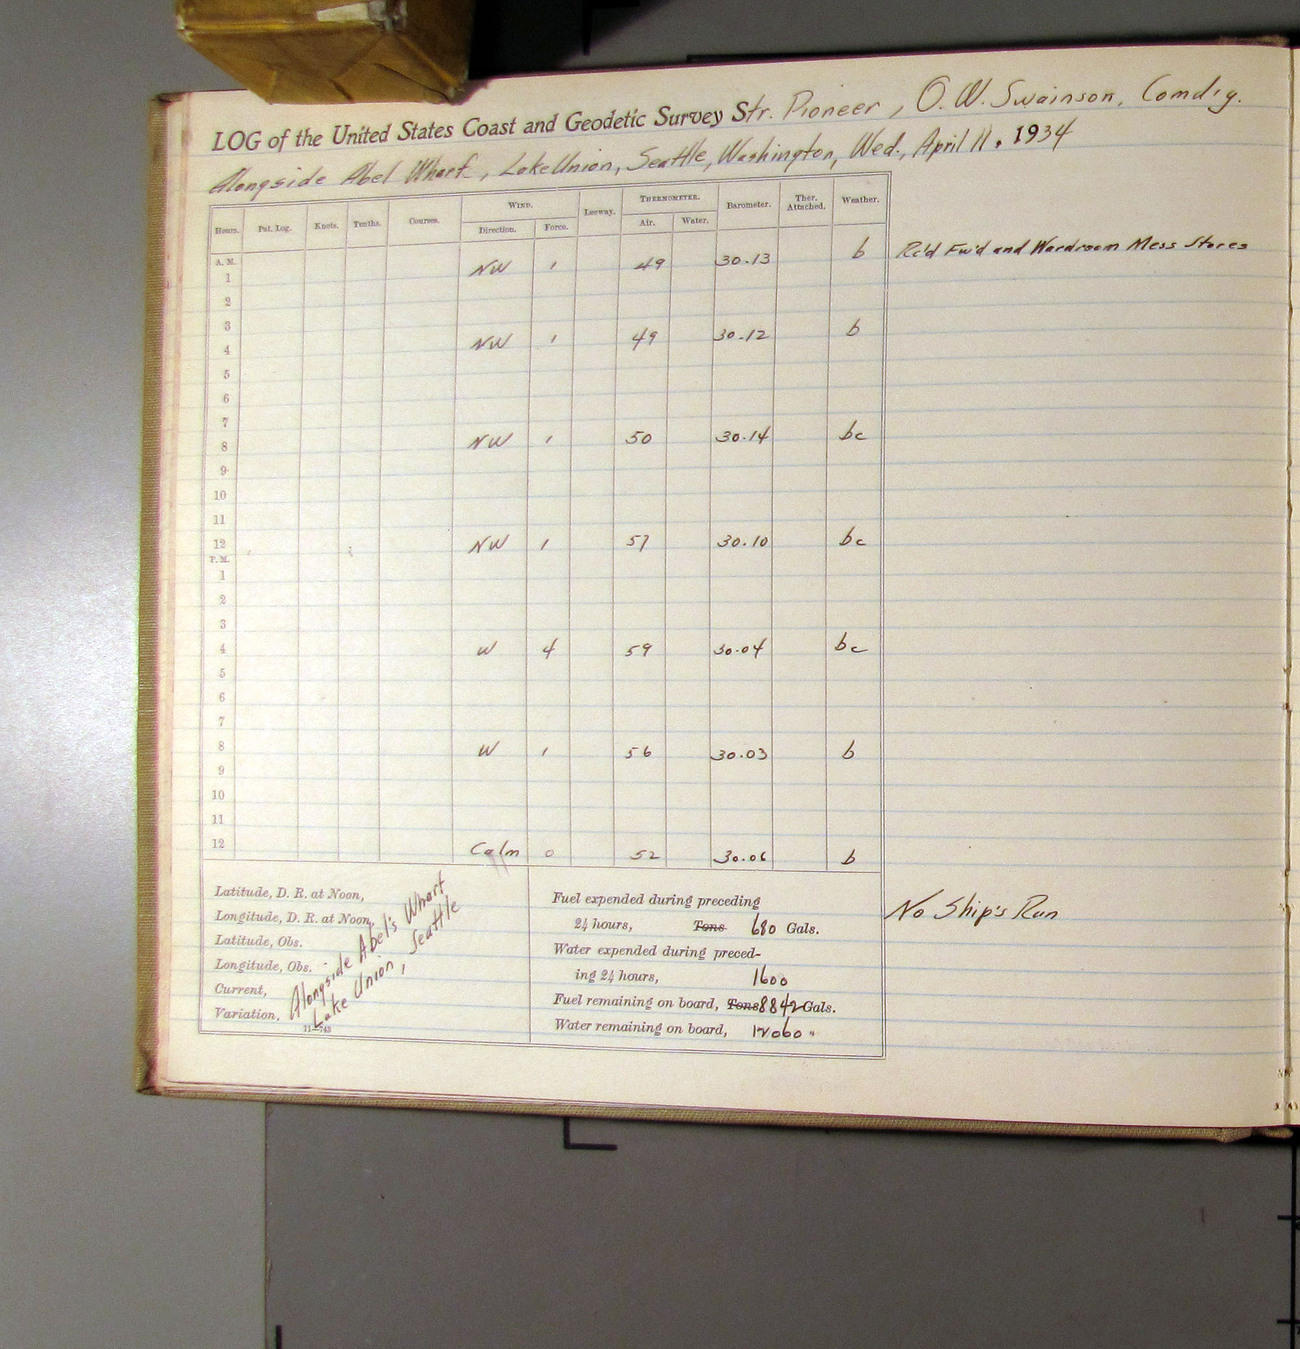 LOG of the United States Coast and Geodetic Survey Str. Pioneer, O. W. Swainson, Comd'g.
Alongside Abel Wharf, Lake Union, Seattle, Washington, Wed., April 11, 1934
Hours. Pat. Log. Knots. Tenths. Courses. WIND. Direction. Force. Leeway. THERMOMETER. Air. Water. Barometer. Ther. Attached. Weather.
A. M.
1 NW 1 49 30.13 b Rc'd Fw'd and Wardroom Mess Stores
2
3
4 NW 1 49 30.12 b
5
6
7
8 NW 1 50 30.14 bc
9
10
11
12 NW 1 57 30.10 bc
P. M.
1
2
3
4 W 4 59 30.04 bc
5
6
7
8 W 1 56 30.03 b
9
10
11
12 Calm 0 52 30.06 b
Latitude, D. R. at Noon,
Longitude, D. R. at Noon,
Latitude, Obs.
Longitude, Obs.
Current,
Variation,
Alongside Abel's Wharf
Lake Union, Seattle
11—743
Fuel expended during preceding
24 hours, Tons 680 Gals.
Water expended during preced-
ing 24 hours, 1600
Fuel remaining on board, Tons 8842 Gals.
Water remaining on board, 12060 "
No Ship's Run